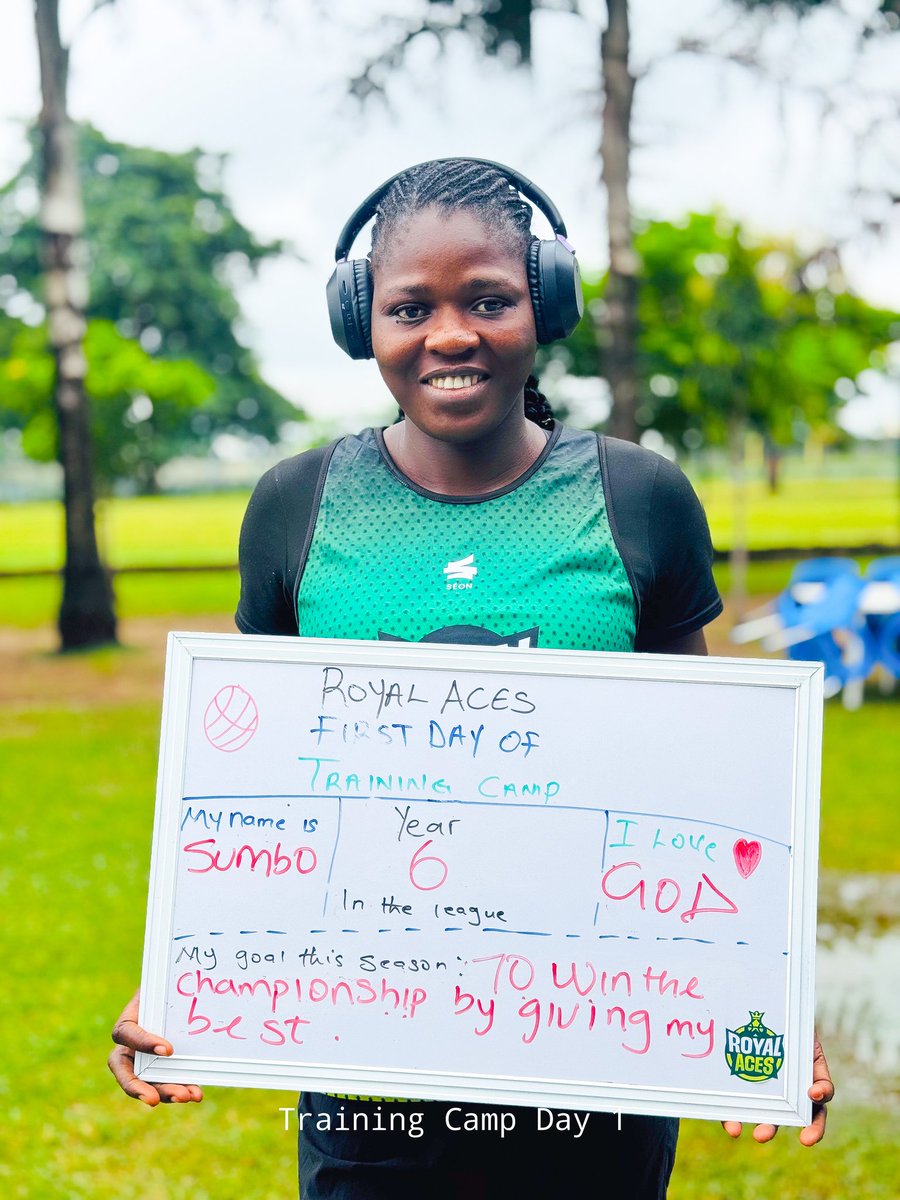 SEON
ROYAL ACES
FIRST DAY OF
TRAINING CAMP
My name is
SUMBO
Year
6
In the league
I Love
GOD
My goal this season: TO Win the
championship by giving my
best.
ROYAL
ACES
Training Camp Day 1